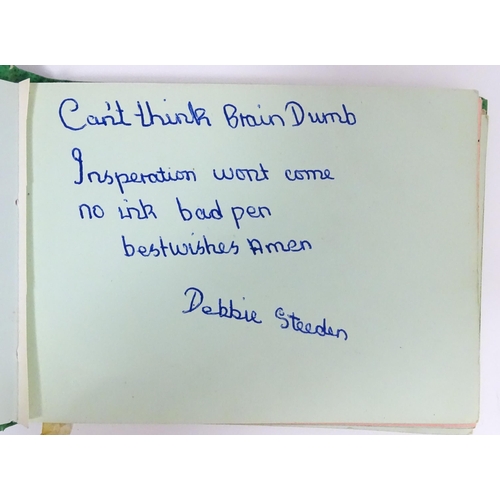 Can't think Brain Dumb
Insperation wont come
no ink bad pen
bestwishes Amen
Debbie Steeden